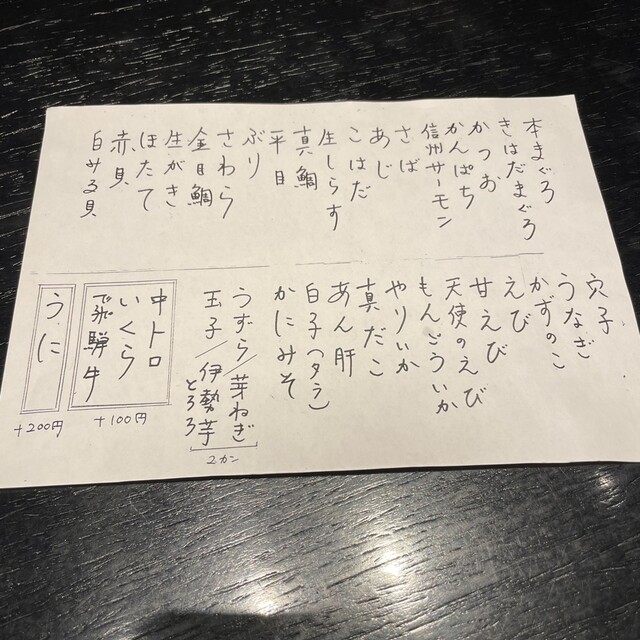 本まぐろ
きはだまぐろ
かつお
かんぱち
信州サーモン
さば
あじ
こはだ
生しらす
真鯛
平目
ぶり
さわら
金目鯛
生がき
ほたて
赤貝
白みる貝
穴子
うなぎ
かずのこ
えび
甘えび
天使のえび
もんごういか
やりいか
真だこ
あん肝
白子(タラ)
かにみそ
うずら/芽ねぎ
玉子/伊勢芋
とろろ
2カン
中トロ
いくら
飛騨牛
+100円
うに
+200円